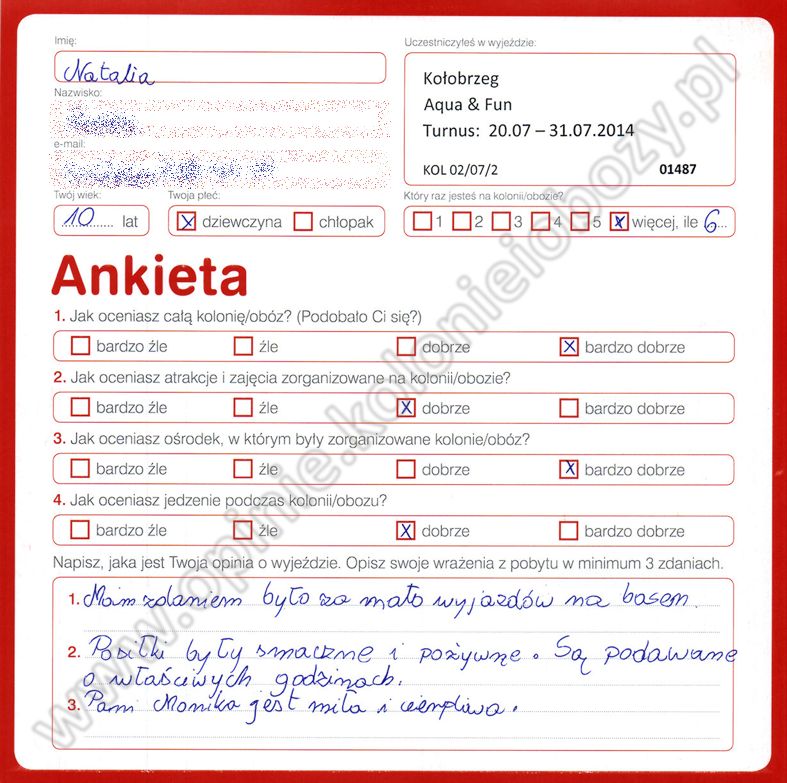 Imię:
Natalia
Nazwisko:
e-mail:
Twój wiek:
10 lat
Twoja płeć:
X dziewczyna chłopak
Uczestniczyłeś w wyjeździe:
Kołobrzeg
Aqua & Fun
Turnus: 20.07 – 31.07.2014
KOL 02/07/2 01487
Który raz jesteś na kolonii/obozie?
1 2 3 4 5 X więcej, ile 6
Ankieta
1. Jak oceniasz całą kolonię/obóz? (Podobało Ci się?)
bardzo źle źle dobrze X bardzo dobrze
2. Jak oceniasz atrakcje i zajęcia zorganizowane na kolonii/obozie?
bardzo źle źle X dobrze bardzo dobrze
3. Jak oceniasz ośrodek, w którym były zorganizowane kolonie/obóz?
bardzo źle źle dobrze X bardzo dobrze
4. Jak oceniasz jedzenie podczas kolonii/obozu?
bardzo źle źle X dobrze bardzo dobrze
Napisz, jaka jest Twoja opinia o wyjeździe. Opisz swoje wrażenia z pobytu w minimum 3 zdaniach.
1. Moim zdaniem było za mało wyjazdów na basen.
2. Posiłki były smaczne i pożywne. Są podawane
o właściwych godzinach.
3. Pani Monika jest miła i cierpliwa.
www.opinie.kolonieiobozy.pl